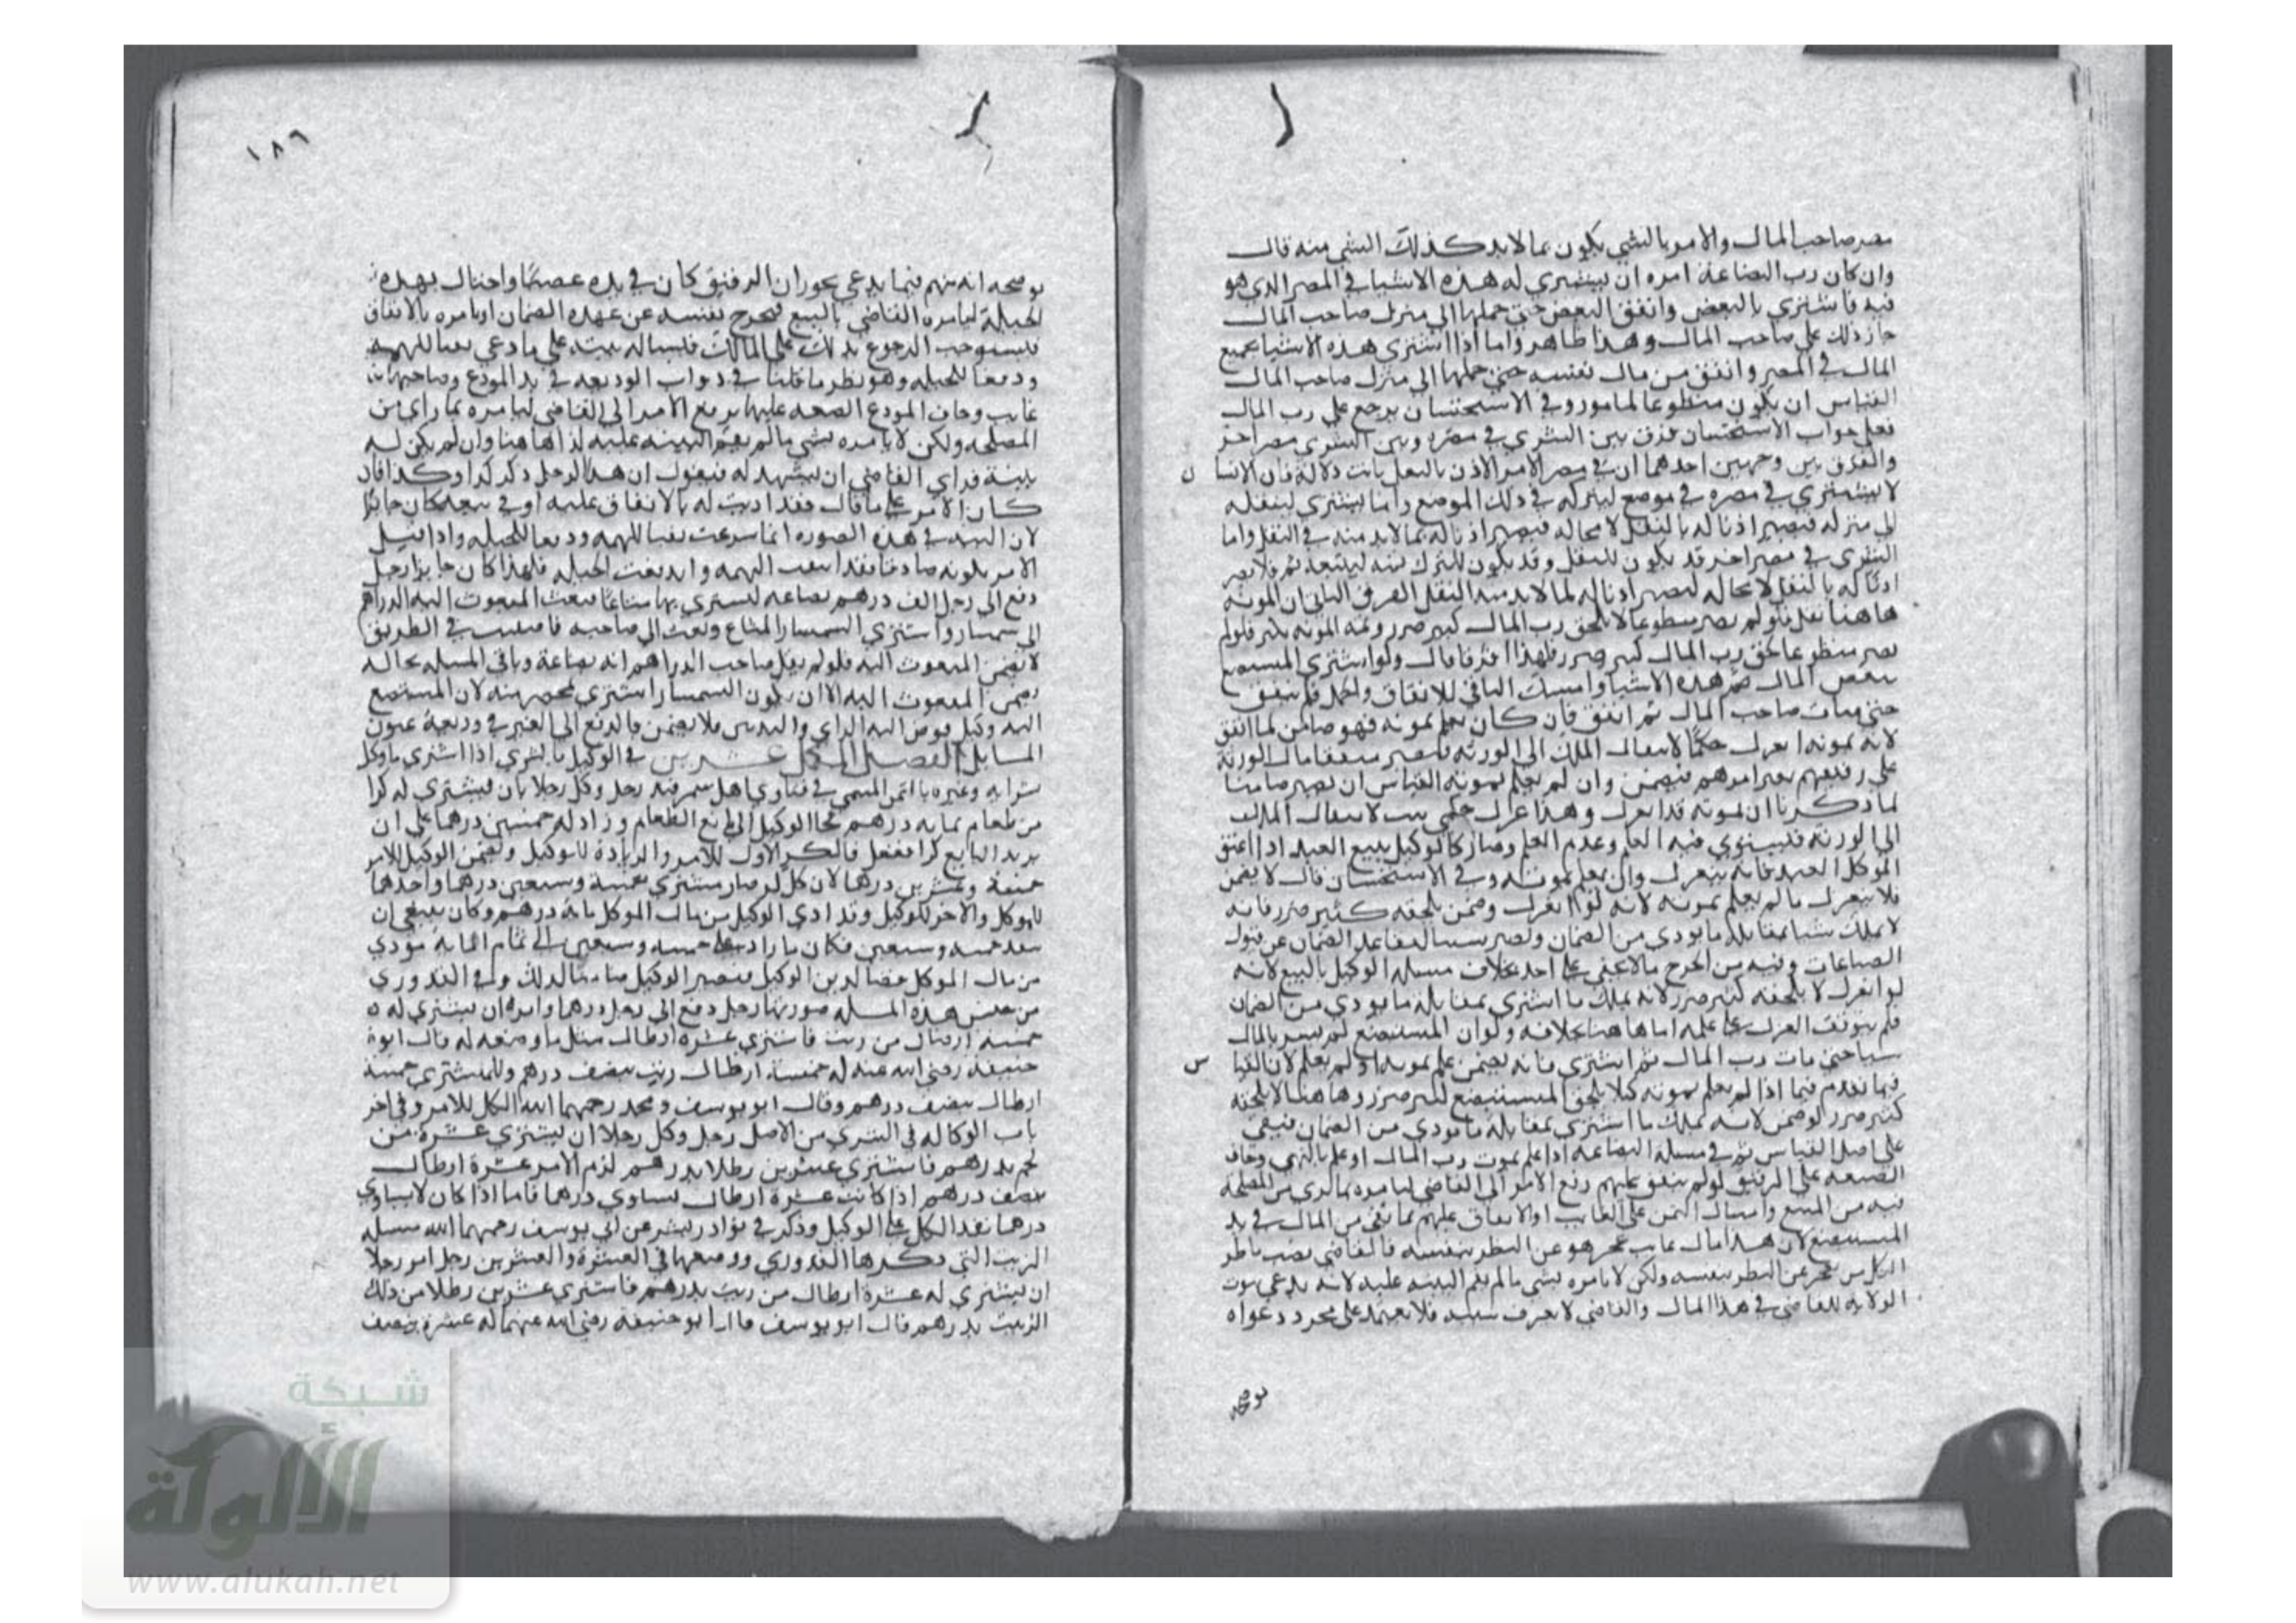 مصر صاحب المال والامر بالشي يكون بما لابد كذلك الشي منه قال
وان كان رب البضاعة امره ان يشتري له هذه الاشيا في المصر الذي هو
فيه فاشتري بالبعض وانفق البعض حتى حملها الي منزل صاحب المال
جاز ذلك على صاحب المال وهذا ظاهر واما اذا اشتري هذه الاشيا بجميع
المال في المصر وانفق من مال نفسه حتى حملها الى منزل صاحب المال
القياس ان يكون متطوعا لمامور وفي الاستحسان يرجع علي رب المال
فعلي جواب الاستحسان فرق بين الشري في مصره وبين الشري مصر اخر
والفرق بين وجهين احدهما ان في مصر الامر الاذن بالنقل ثابت دلالة فان الانسا ن
لا يشتري في مصره في موضع ليتركه في ذلك الموضع وانما يشتري لينقله
الي منزله فيصير اذنا له بالنقل لا محالة فيصير اذنا له بما لابد منه في النقل واما
الشري في مصر اخر قد يكون للنقل وقد يكون للترك فيه ليبيعه ثم فلا يصر
اذنا له بالنقل لا محاله ليصير اذنا له لما لابد منه النقل الفرق الثاني ان المونه
هاهنا تقل فلو لم يصر متطوعا لا يلحق رب المال كبير ضرر وثمه المونه تكثر فلو لم
يصر متطوعا لحق رب المال كبير ضرر فلهذا افترقا قال ولو اشتري المستبضع
ببعض المال هذه الاشيا وامسك الباقي للانفاق والحمل فلم ينفق
حتى مات صاحب المال ثم انفق فان كان يعلم بموته فهو ضامن لما انفق
لانه بموته انعزل حكما لانتقال الملك الى الورثه فيصير منفقا مال الورثة
علي رقيقهم بغير امرهم فيضمن وان لم يعلم بموته القياس ان يصير ضامنا
لما ذكرنا ان بموته قد انعزل وهذا عزل حكمي ثبت لانتقال الملك
الى الورثة فليستوي فيه العلم وعدم العلم وصار كالوكيل ببيع العبد اذا اعتق
الموكل العبد فانه ينعزل وان لم يعلم بموته وفي الاستحسان قال لا يضمن
فلا ينعزل ما لم يعلم بموته لانه لو انعزل وضمن يلحقه كثير ضرر فانه
لا يملك شيا بمقابلة ما يودي من الضمان ويصير سببا لتقاعد الضمان عن قبول
البضاعات وفيه من الحرج مالا يخفي على احد بخلاف مسلة الوكيل بالبيع لانه
لو انعزل لا يلحقه كثير ضرر لانه يملك ما اشتري بمقابلة ما يودي من الضمان
فلم يتوقف العزل على علمه اما هاهنا بخلافه ولو ان المستبضع لم يشتر بالمال
شيا حتى مات رب المال ثم اشتري فانه يضمن علم بموته او لم يعلم لان القيا س
فيما تقدم فيما اذا لم يعلم بموته كيلا يلحق المستبضع كثير ضرر وهاهنا لا يلحقه
كثير ضرر لو ضمن لانه يملك ما اشتري بمقابلة ما يودي من الضمان فيبقي
على اصل القياس ثم في مسلة البضاعه اذا علم بموت رب المال او علم بالنهي وخاف
الضيعه على الرقيق لو لم ينفق عليهم رفع الامر الى القاضي ليامره بما يري من المصلحة
فيه من البيع وامساك الثمن على الغايب او الانفاق عليهم بما بقي من المال في يد
المستبضع لان هذا مال غايب عجز هو عن النظر بنفسه فالقاضي نصب ناظر
لكل من عجز عن النظر بنفسه ولكن لا يامره بشي ما لم يقم البينه عليه لانه يدعي ثبوت
الولايه للقاضي في هذا المال والقاضي لا يعرف سببه فلا يعتمد على مجرد دعواه
يوضحه
١٨٦
يوضحه انه متهم فيما يدعي يجوز ان الرقيق كان في يده غصبا واحتال بهذه
الحيلة ليامره القاضي بالبيع فيخرج نفسه عن عهده الضمان او يامره بالانفاق
فليستوجب الرجوع بذلك على المالك فليساله بينه على ما دعي نفيا للتهمه
ودفعا للحيله وهو نظير ما قلنا في دواب الوديعه في يد المودع وصاحبها
غايب وخاف المودع الضيعه عليها يرفع الامر الي القاضي ليامره بما راي من
المصلحه ولكن لا يامره بشي ما لم يقم البينه عليه لذا هاهنا وان لم يكن له
بينة فراي القاضي ان يشهد له فيقول ان هذا الرجل ذكر كذا وكذا فان
كان الامر على ما قال فقد اذنت له بالانفاق عليه او في بيعه كان جائزا
لان البينه في هذه الصوره انما شرعت نفيا للتهمه ودفعا للحيله واذا قيل
الامر بكونه صادقا فقد انتفت التهمه واندفعت الحيله فلهذا كان جايزا رجل
دفع الي رجل الف درهم بضاعه ليشتري بها متاعا فبعث المبعوث اليه الدراهم
الى سمسار واشتري السمسار المتاع وبعث الى صاحبه فاصيبت في الطريق
لا يضمن المبعوث اليه فلو لم يقل صاحب الدراهم انه بضاعة وباقي المسله بحاله
يضمن المبعوث اليه الا ان يكون السمسار اشتري بمحضر منه لان المستبضع
اليه وكيل فوض اليه الراي والتدبير فلا يضمن بالدفع الى الغير في وديعة عيون
المسايل الفصل الحادي عشرين في الوكيل بالشري اذا اشترى ما وكل
بشرايه وغيره بالثمن المسمى في فتاوي اهل سمرقند رجل وكل رجلا بان يشتري له كرا
من طعام بمايه درهم فجا الوكيل الي بايع الطعام وزاد له خمسين درهما على ان
يزيد البايع كرا ففعل فالكر الاول للامر والزيادة للوكيل ويضمن الوكيل للامر
خمسة وعشرين درهما لان كل كر صار مشتري بخمسة وسبعين درهما واحدهما
للموكل والاخر للوكيل وقد ادى الوكيل من مال الموكل ماية درهم وكان ينبغي ان
ينقد خمسه وسبعين فكان ما زاد على خمسه وسبعين الى تمام الماية مودي
من مال الموكل قضا لدين الوكيل فيصير الوكيل ضامنا لذلك وفي القدوري
من جنس هذه المسله صورتها رجل دفع الي رجل درهما وامره ان يشتري له
خمسة ارطال من زيت فاشتري عشرة ارطال مثل ما وصفه له قال ابو
حنيفة رضي الله عنه له خمسة ارطال زيت بنصف درهم وللمشتري خمسة
ارطال بنصف درهم وقال ابو يوسف ومحمد رحمهما الله الكل للامر وفي اخر
باب الوكاله في الشري من الاصل رجل وكل رجلا ان يشتري عشرة من
لحم بدرهم فاشتري عشرين رطلا بدرهم لزم الامر عشرة ارطال
بنصف درهم اذا كانت عشرة ارطال تساوي درهما فاما اذا كان لا يساوي
درهما نفذ الكل على الوكيل وذكر في نوادر بشر عن ابي يوسف رحمهما الله مسله
الزيت التي ذكرها القدوري ووضعها في العشرة والعشرين رجل امر رجلا
ان يشتري له عشرة ارطال من زيت بدرهم فاشتري عشرين رطلا من ذلك
الزيت بدرهم قال ابو يوسف قال ابو حنيفه رضي الله عنهما له عشره بنصف
شبكة
الألوكة
www.alukah.net